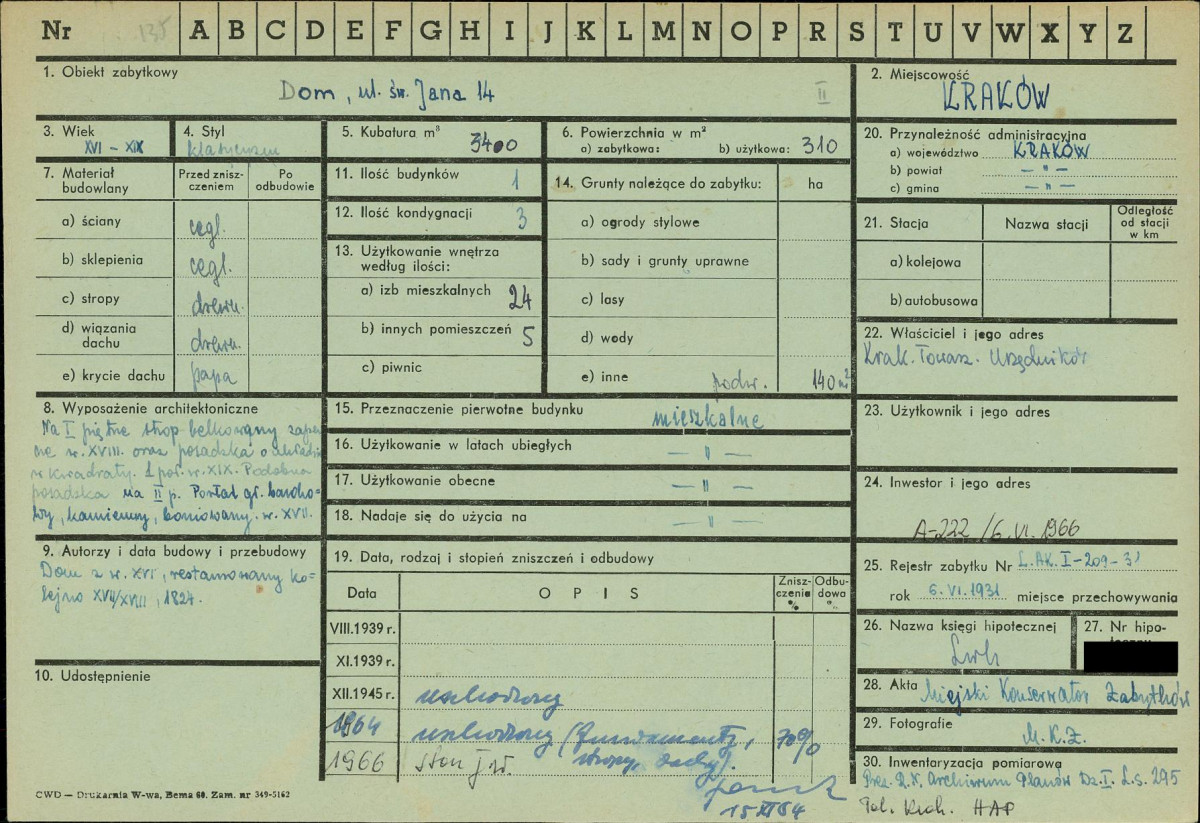 Nr 135 A B C D E F G H I J K L M N O P R S T U V W X Y Z
1. Obiekt zabytkowy
Dom, ul. św. Jana 14 II
2. Miejscowość
KRAKÓW
3. Wiek
XVI – XIX
4. Styl
klasycyzm
5. Kubatura m³
3400
6. Powierzchnia w m²
a) zabytkowa: b) użytkowa: 310
7. Materiał budowlany
Przed znisz-
czeniem
Po
odbudowie
a) ściany cegł.
b) sklepienia cegł.
c) stropy drewn.
d) wiązania
dachu drewn.
e) krycie dachu papa
11. Ilość budynków 1
12. Ilość kondygnacji 3
13. Użytkowanie wnętrza
według ilości:
a) izb mieszkalnych 24
b) innych pomieszczeń 5
c) piwnic
14. Grunty należące do zabytku: ha
a) ogrody stylowe
b) sady i grunty uprawne
c) lasy
d) wody
e) inne podw. 140 m²
20. Przynależność administracyjna
a) województwo KRAKÓW
b) powiat — " —
c) gmina — " —
21. Stacja
Nazwa stacji
Odległość
od stacji
w km
a) kolejowa
b) autobusowa
22. Właściciel i jego adres
Krak. Towarz. Urzędników
8. Wyposażenie architektoniczne
Na I piętrze strop belkowany zape-
wne w. XVIII. oraz posadzka o układzie
w kwadraty. 1 poł. w. XIX. Podobna
posadzka na II p. Portal gł. baroko-
wy, kamienny, boniowany. w. XVII.
15. Przeznaczenie pierwotne budynku mieszkalne
16. Użytkowanie w latach ubiegłych — " —
17. Użytkowanie obecne — " —
18. Nadaje się do użycia na — " —
23. Użytkownik i jego adres
24. Inwestor i jego adres
A-222 /6.VI.1966
9. Autorzy i data budowy i przebudowy
Dom z w. XVI, restaurowany ko-
lejno XVII/XVIII, 1824.
10. Udostępnienie
19. Data, rodzaj i stopień zniszczeń i odbudowy
Data
OPIS
Znisz-
czenie
%
Odbu-
dowa
%
VIII.1939 r.
XI.1939 r.
XII.1945 r. uszkodzony
1964 uszkodzony (fundamenty, 70%
stropy, dachy).
1966 stan j.w.
15 XI 64
25. Rejestr zabytku Nr L.AK.I-209-31
rok 6.VI.1931 miejsce przechowywania
26. Nazwa księgi hipotecznej
Lwh
27. Nr hipo-
28. Akta Miejski Konserwator Zabytków
29. Fotografie
M.K.Z.
30. Inwentaryzacja pomiarowa
Prez. R.N. Archiwum Planów Dz.I. L.s. 295
Pol. Krak. HAP
CWD — Drukarnia W-wa, Bema 60. Zam. nr 349-5162